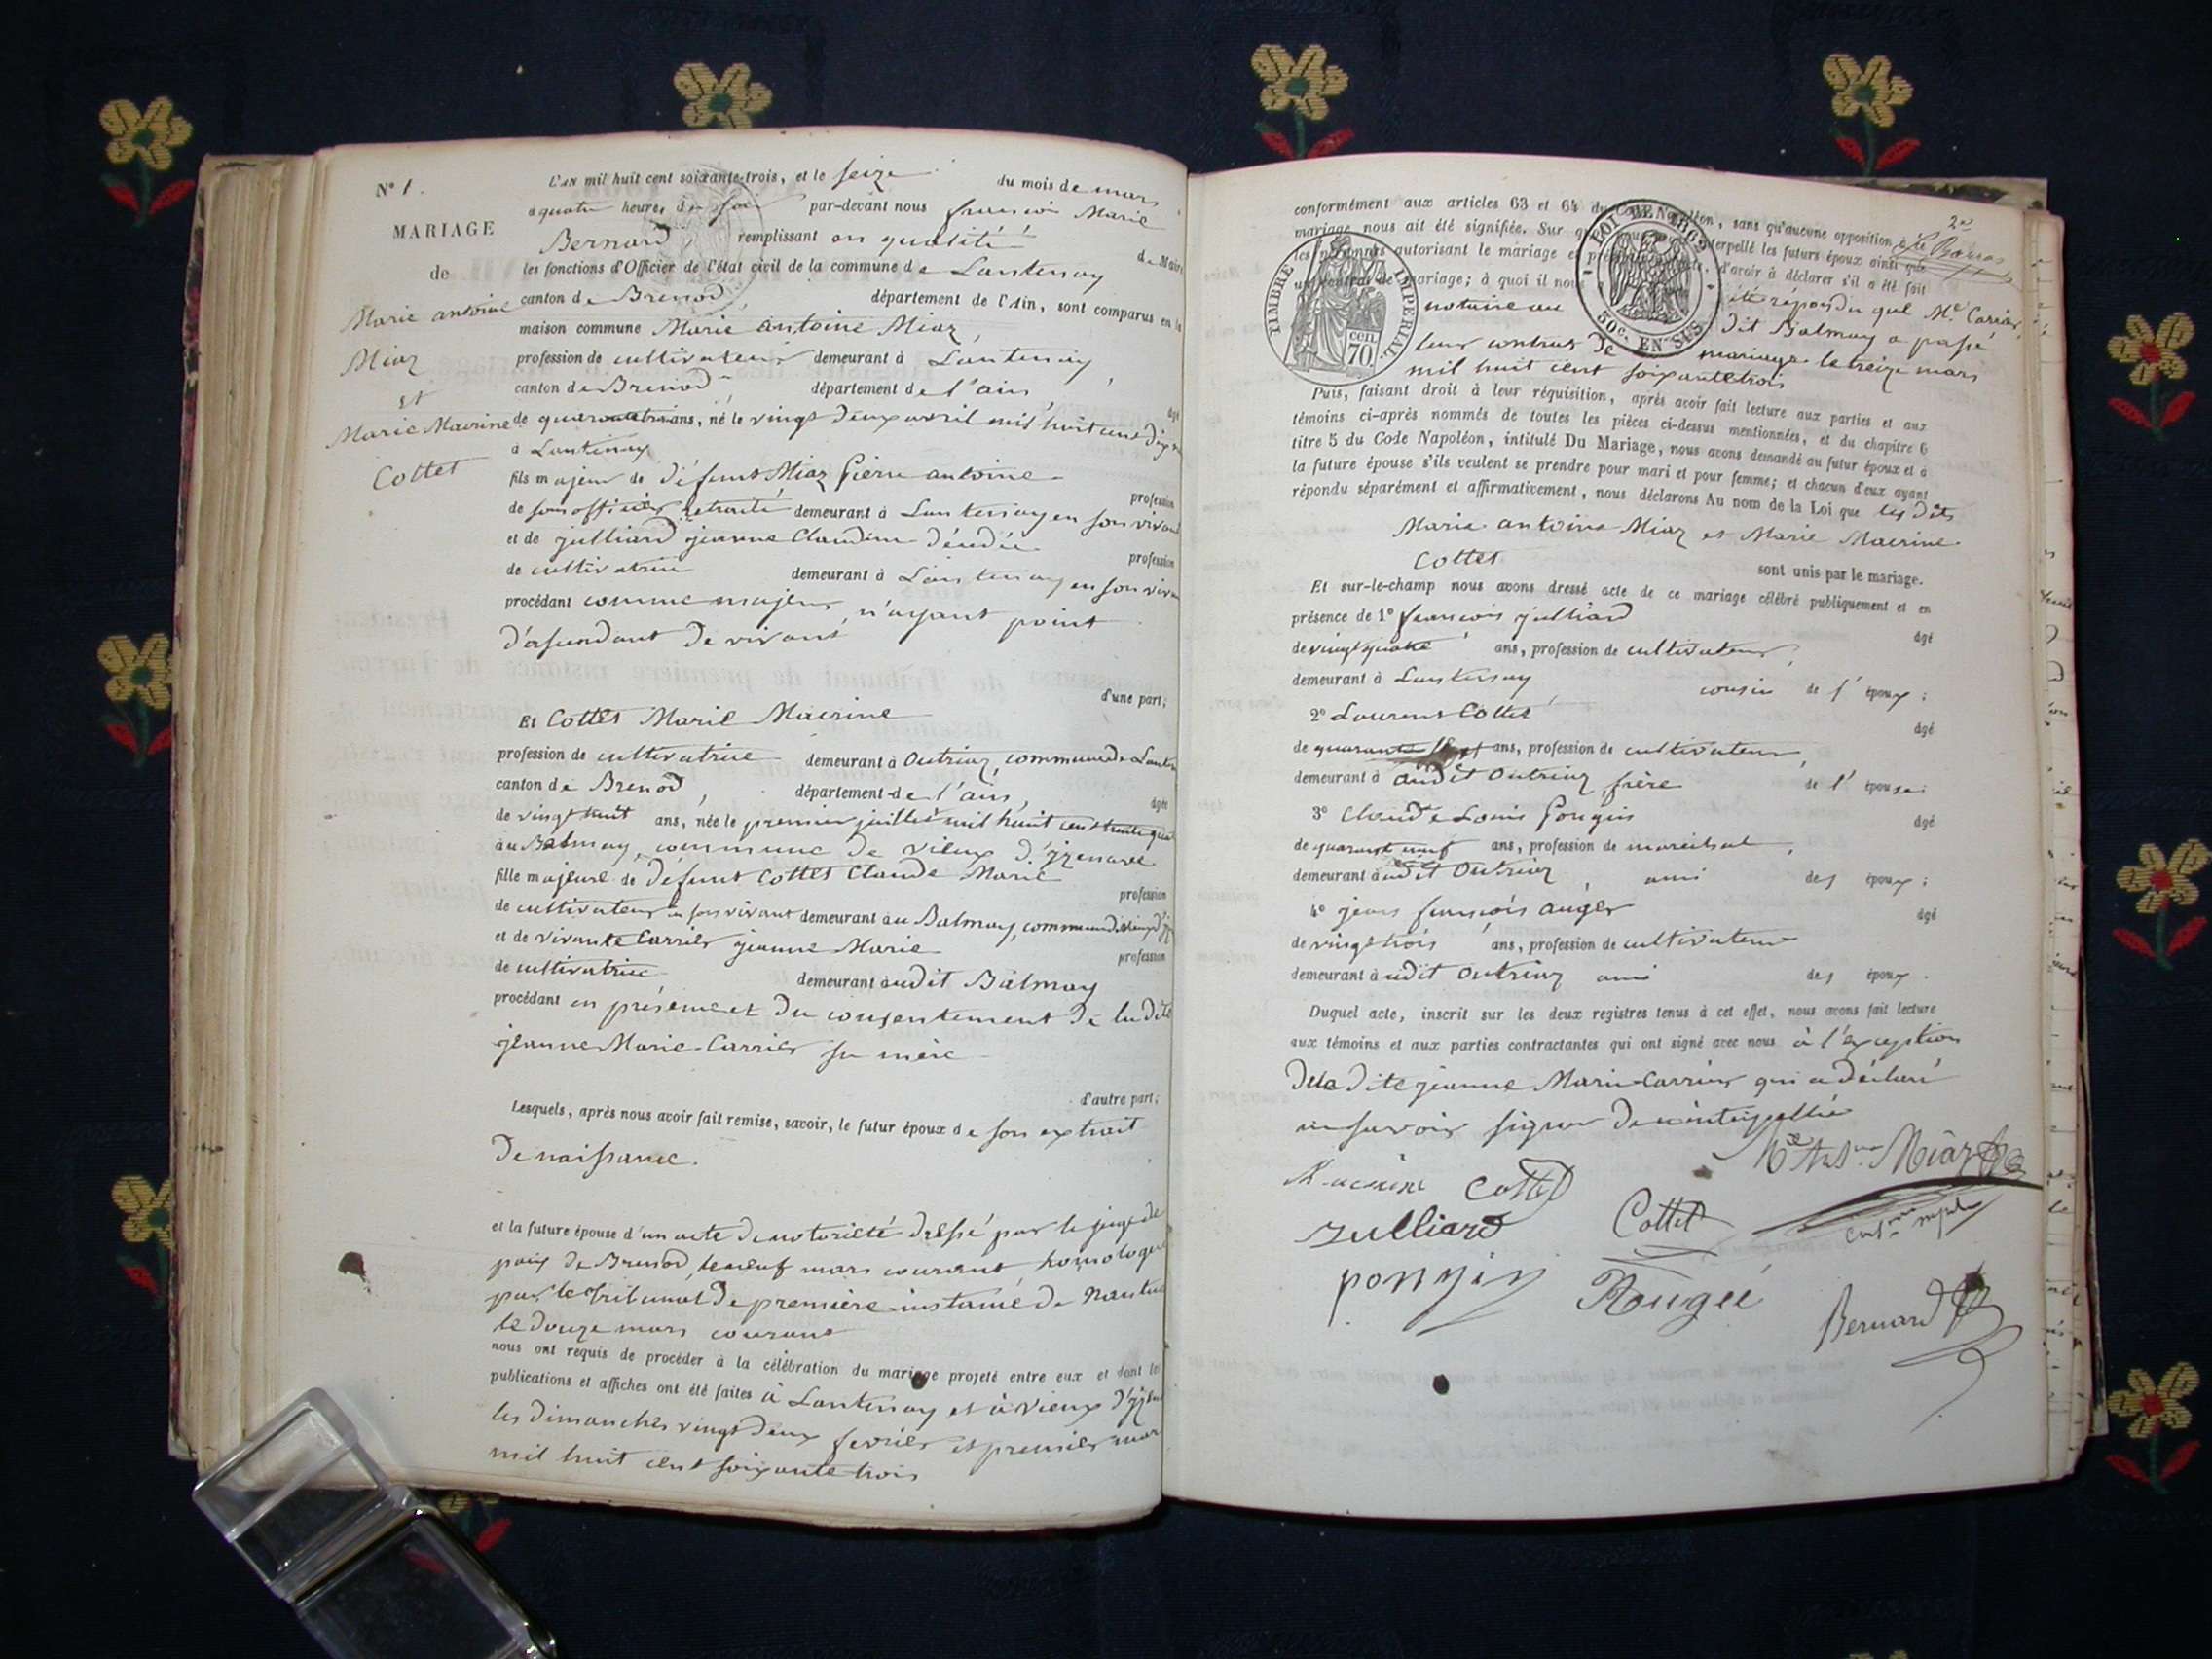 N° 1.
MARIAGE
de
Marie antoine
Miaz
et
Marie Macrine
Cottet
L'AN mil huit cent soixante-trois, et le seize du mois de mars
à quatre heures du soir par-devant nous françois Marie
Bernard, remplissant en qualité de Maire
les fonctions d'Officier de l'état civil de la commune de Lantenay
canton de Brenod, département de l'Ain, sont comparus en la
maison commune Marie antoine Miaz,
profession de cultivateur demeurant à Lantenay,
canton de Brenod département de l'ain, âgé
de ans, né le vingt deux avril mil huit cent
à Lantenay
fils majeur de défunt Miaz Pierre antoine profession
de sous officier retraité demeurant à Lantenay en son vivant
et de julliard jeanne Claudine décédée profession
de cultivatrice demeurant à Lantenay en son
procédant comme majeur, n'ayant point
d'assendant de vivant
d'une part;
Et Cottet Marie Macrine
profession de cultivatrice demeurant à Outriaz, commune de
canton de Brenod, département de l'ain, âgée
de vingt huit ans, née le premier juillet mil huit cent trente
au Balmay, commune de vieux d'yzenave
fille majeure de défunt Cottet Claude Marie profession
de cultivateur en son vivant demeurant au Balmay, commune de
et de vivante Carrier jeanne Marie profession
de cultivatrice demeurant audit Balmay
procédant en présence et du consentement de ladite
jeanne Marie Carrier sa mère
d'autre part;
Lesquels, après nous avoir fait remise, savoir, le futur époux de son extrait
de naissance.
et la future épouse d'un acte de notoriété dressé par le juge de
paix de Brenod, le neuf mars courant, homologué
par le tribunal de première instance de
le douze mars courant
nous ont requis de procéder à la célébration du mariage projeté entre eux et dont les
publications et affiches ont été faites à Lantenay et à vieux
les dimanches vingt deux fevrier et premier mars
mil huit cent soixante trois
2e
conformément aux articles 63 et 64 du Code Napoléon, sans qu'aucune opposition à ce
mariage nous ait été signifiée. Sur interpellé les futurs époux ainsi que
les personnes autorisant le mariage et d'avoir à déclarer s'il a été fait
un contrat de mariage; à quoi il nous a été répondu que Me Carrier,
notaire au dit Balmay a passé
leur contrat de mariage le treize mars
mil huit cent soixante trois
TIMBRE IMPERIAL.
70. cen
LOI DE 1862
50c. EN SUS
Puis, faisant droit à leur réquisition, après avoir fait lecture aux parties et aux
témoins ci-après nommés de toutes les pièces ci-dessus mentionnées, et du chapitre 6
titre 5 du Code Napoléon, intitulé Du Mariage, nous avons demandé au futur époux et à
la future épouse s'ils veulent se prendre pour mari et pour femme; et chacun d'eux ayant
répondu séparément et affirmativement, nous déclarons Au nom de la Loi que les dits
Marie antoine Miaz et Marie Macrine
Cottet
sont unis par le mariage.
Et sur-le-champ nous avons dressé acte de ce mariage célébré publiquement et en
présence de 1° françois julliard âgé
de vingt quatre ans, profession de cultivateur,
demeurant à Lantenay cousin de l' époux;
2° Laurent Cottet âgé
de quarante ans, profession de cultivateur,
demeurant à audit Outriaz, frère de l' épouse;
3° Claude Louis Pongin âgé
de quarante neuf ans, profession de maréchal,
demeurant audit Outriaz, ami des époux;
4° jean françois auger âgé
de vingt trois ans, profession de cultivateur
demeurant audit Outriaz ami des époux.
Duquel acte, inscrit sur les deux registres tenus à cet effet, nous avons fait lecture
aux témoins et aux parties contractantes qui ont signé avec nous à l'exception
de la dite jeanne Marie Carrier qui a déclaré
ne savoir signer de ce interpellée
Macrine Cottet
Miaz
Julliard
Cottet
pongin
Rougée
Bernard